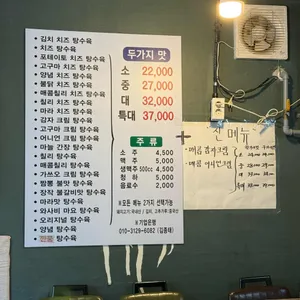 김치 치즈 탕수육
치즈 탕수육
포테이토 치즈 탕수육
고구마 치즈 탕수육
양념 치즈 탕수육
불닭 치즈 탕수육
매콤칠리 치즈 탕수육
마라 치즈 탕수육
감자 크림 탕수육
고구마 크림 탕수육
어니언 크림 탕수육
마늘 간장 탕수육
칠리 탕수육
매콤칠리 탕수육
가쓰오 크림 탕수육
짬뽕 불맛 탕수육
장작 불갈비맛 탕수육
마라맛 탕수육
와사비 마요 탕수육
오리지널 탕수육
양념 탕수육
간풍 탕수육
두가지 맛
소 22,000
중 27,000
대 32,000
특대 37,000
주류
소주 4,500
맥주 5,000
생맥주 500cc 4,500
청하 5,000
음료수 2,000
※모든 메뉴 2가지 선택가능
※기업은행
010-3129-6082
신 메뉴